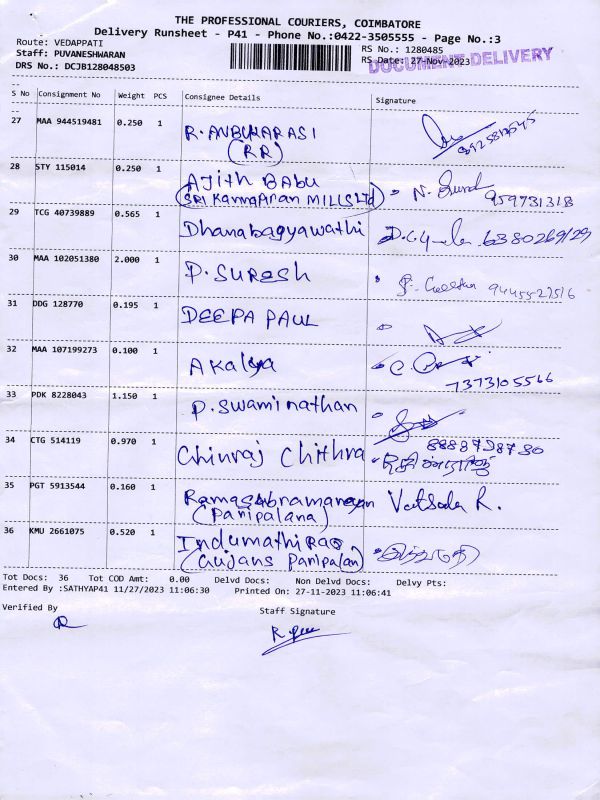 THE PROFESSIONAL COURIERS, COIMBATORE
Delivery Runsheet - P41 - Phone No.:0422-3505555 - Page No.:3
Route: VEDAPPATI
RS No.: 1280485
Staff: PUVANESHWARAN
RS Date: 27-Nov-2023
DOCUMENT DELIVERY
DRS No.: DCJB128048503
S No Consignment No Weight PCS Consignee Details Signature
27 MAA 944519481 0.250 1 R.ANBUKARASI
(RR)
28 STY 115014 0.250 1 AJith BABU
(SRI Kannapiran MILLS Ltd) 959731318
29 TCG 40739889 0.565 1 Dhanabagyawathi
30 MAA 102051380 2.000 1 P. SURESH
31 DDG 128770 0.195 1 DEEPA PAUL
32 MAA 107199273 0.100 1 AKalya
7373105566
33 PDK 8228043 1.150 1 P. Swaminathan
34 CTG 514119 0.970 1 Chinraj Chithra
35 PGT 5913544 0.160 1 Ramasubramaneyan R.
(Paripalana)
36 KMU 2661075 0.520 1 Indumathi Rao
(Gujans Paripalan)
Tot Docs: 36 Tot COD Amt: 0.00 Delvd Docs: Non Delvd Docs: Delvy Pts:
Entered By :SATHYAP41 11/27/2023 11:06:30 Printed On: 27-11-2023 11:06:41
Verified By Staff Signature